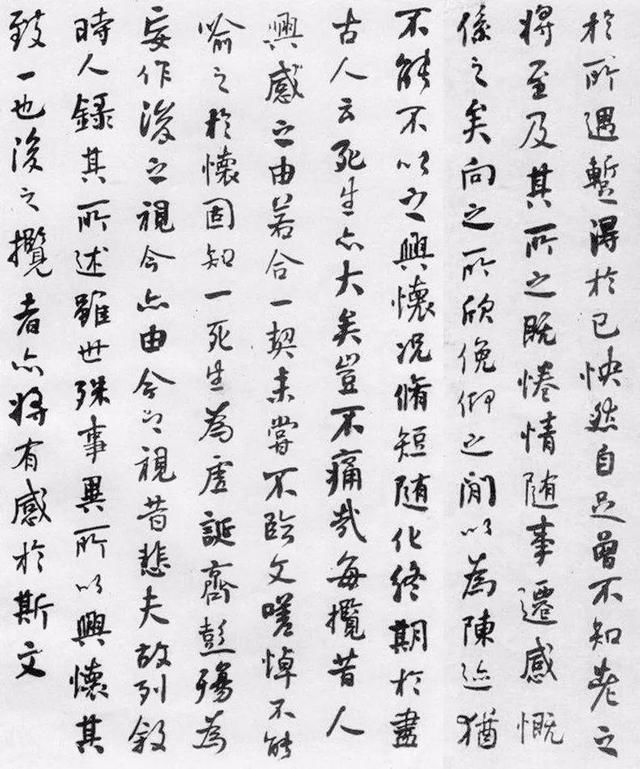 於所遇暫得於己怏然自足曾不知老之
將至及其所之既惓情随事遷感慨
係之矣向之所欣俛仰之閒以為陳迹猶
不能不以之興懷況脩短随化終期於盡
古人云死生亦大矣豈不痛哉每攬昔人
興感之由若合一契未嘗不臨文嗟悼不能
喻之於懷固知一死生為虛誕齊彭殤為
妄作後之視今亦由今之視昔悲夫故列敘
時人錄其所述雖世殊事異所以興懷其
致一也後之攬者亦將有感於斯文